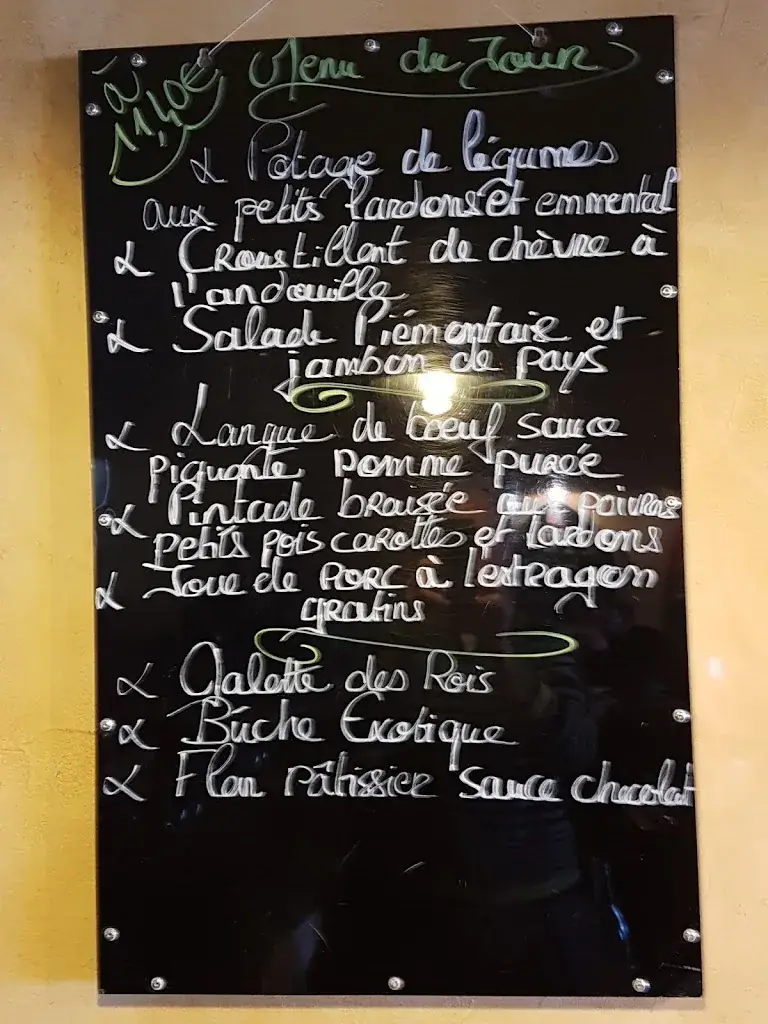 à
11,40€
Menu du Jour
α Potage de légumes
aux petits lardons et emmental
α Croustillant de chèvre à
l'andouille
α Salade Piémontaise et
jambon de pays
α Langue de bœuf sauce
piquante pomme purée
α Pintade braisée aux poivrons
petits pois carottes et lardons
α Joue de porc à l'estragon
gratins
α Galette des Rois
α Bûche Exotique
α Flan pâtissier sauce chocolat